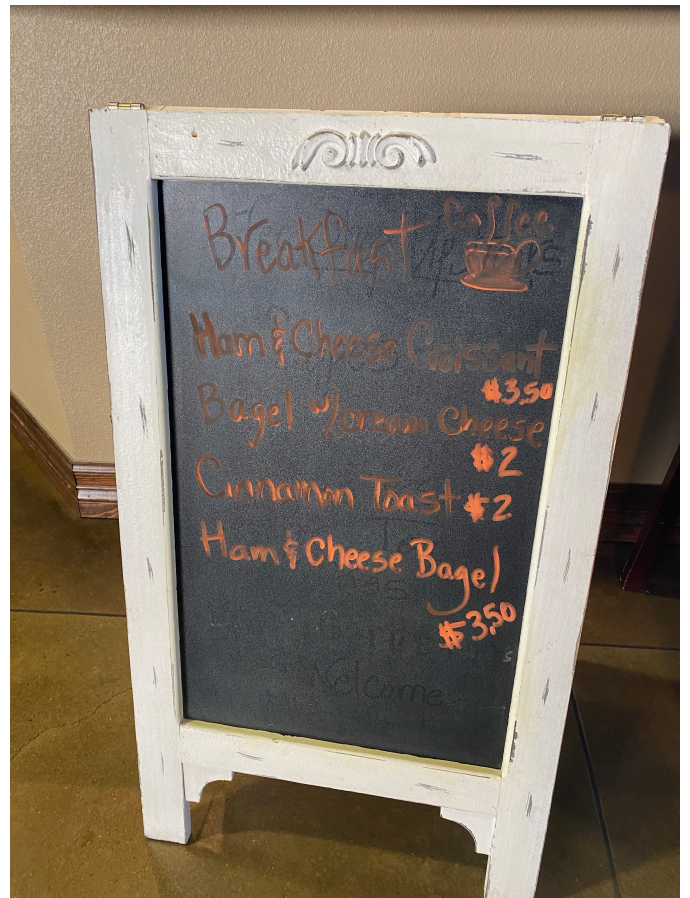 Breakfast Coffee
Ham & Cheese Croissant
$3.50
Bagel w/cream Cheese
$2
Cinnamon Toast $2
Ham & Cheese Bagel
$3.50
Welcome